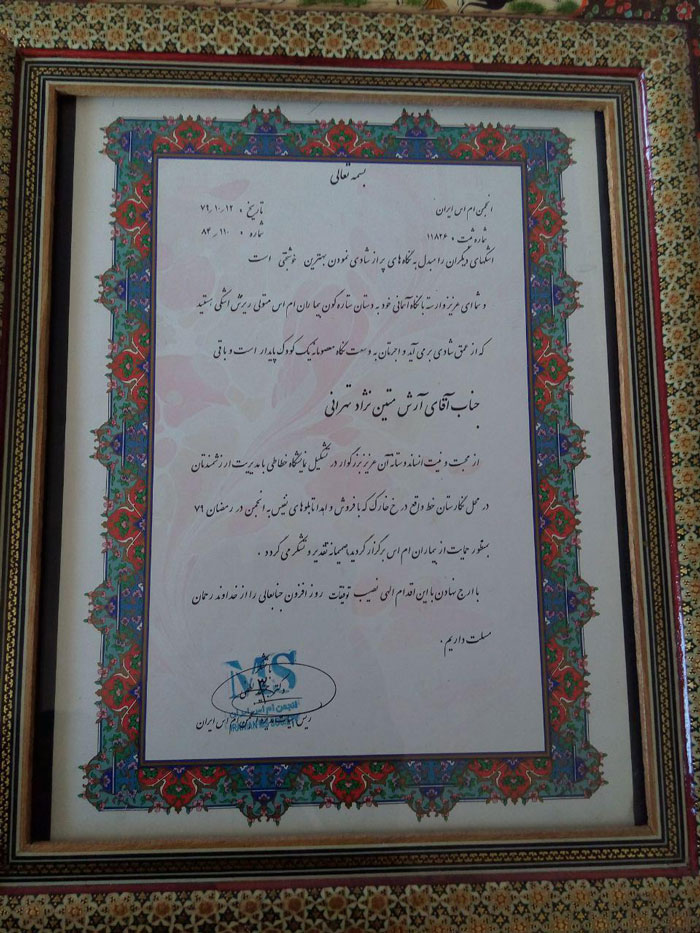 بسمه تعالی
انجمن ام اس ایران تاریخ : ۷۹-۱۰-۱۲
شماره ثبت : ۱۱۸۲۶ شماره : ۱۱۰-۸۴
اشکهای دیگران را مبدل به نگاه های پر از شادی نمودن بهترین خوشبختی است
و شما ای عزیز وارسته با نگاه آسمانی خود به دستان ستاره گون بیماران ام اس متولی ریزش اشکی هستید
که از عمق شادی بر می آید و اجرتان به وسعت نگاه معصومانه یک کودک پایدار است و باقی
جناب آقای آرش متین نژاد تهرانی
از محبت و نیت انساندوستانه آن عزیز بزرگوار در تشکیل نمایشگاه خطاطی با مدیریت ارزشمندتان
در محل نگارستان خط واقع در خ خارک که با فروش و اهدا تابلوهای نفیس به انجمن در رمضان ۷۹
بمنظور حمایت از بیماران ام اس برگزار گردید صمیمانه تقدیر و تشکر می گردد .
با ارج نهادن با این اقدام الهی نصیب توفیقات روز افزون جنابعالی را از خداوند رحمان
مسئلت داریم .
MS
انجمن ام اس ایران
IRANIAN MS SOCIETY